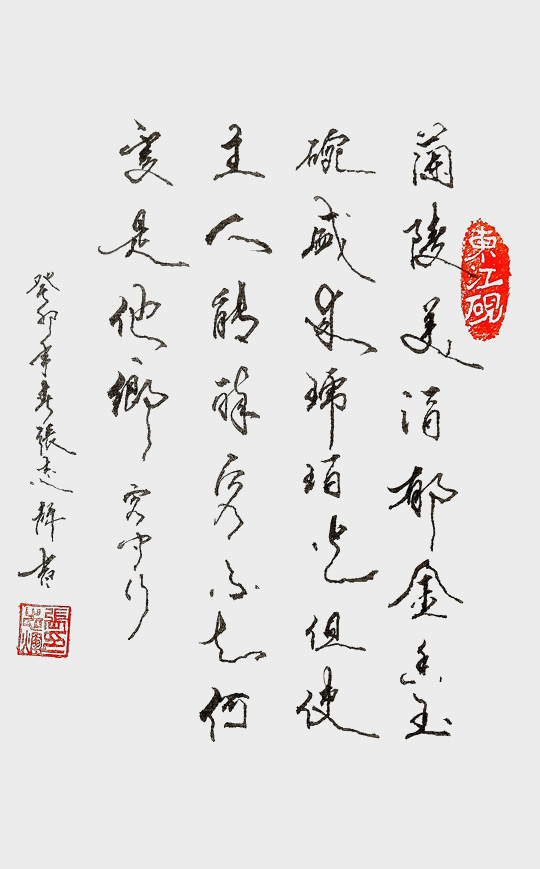 東江硯
蘭陵美酒郁金香玉
碗盛来琥珀光但使
主人能醉客不知何
處是他鄉 客中行
癸卯年春張志輝書